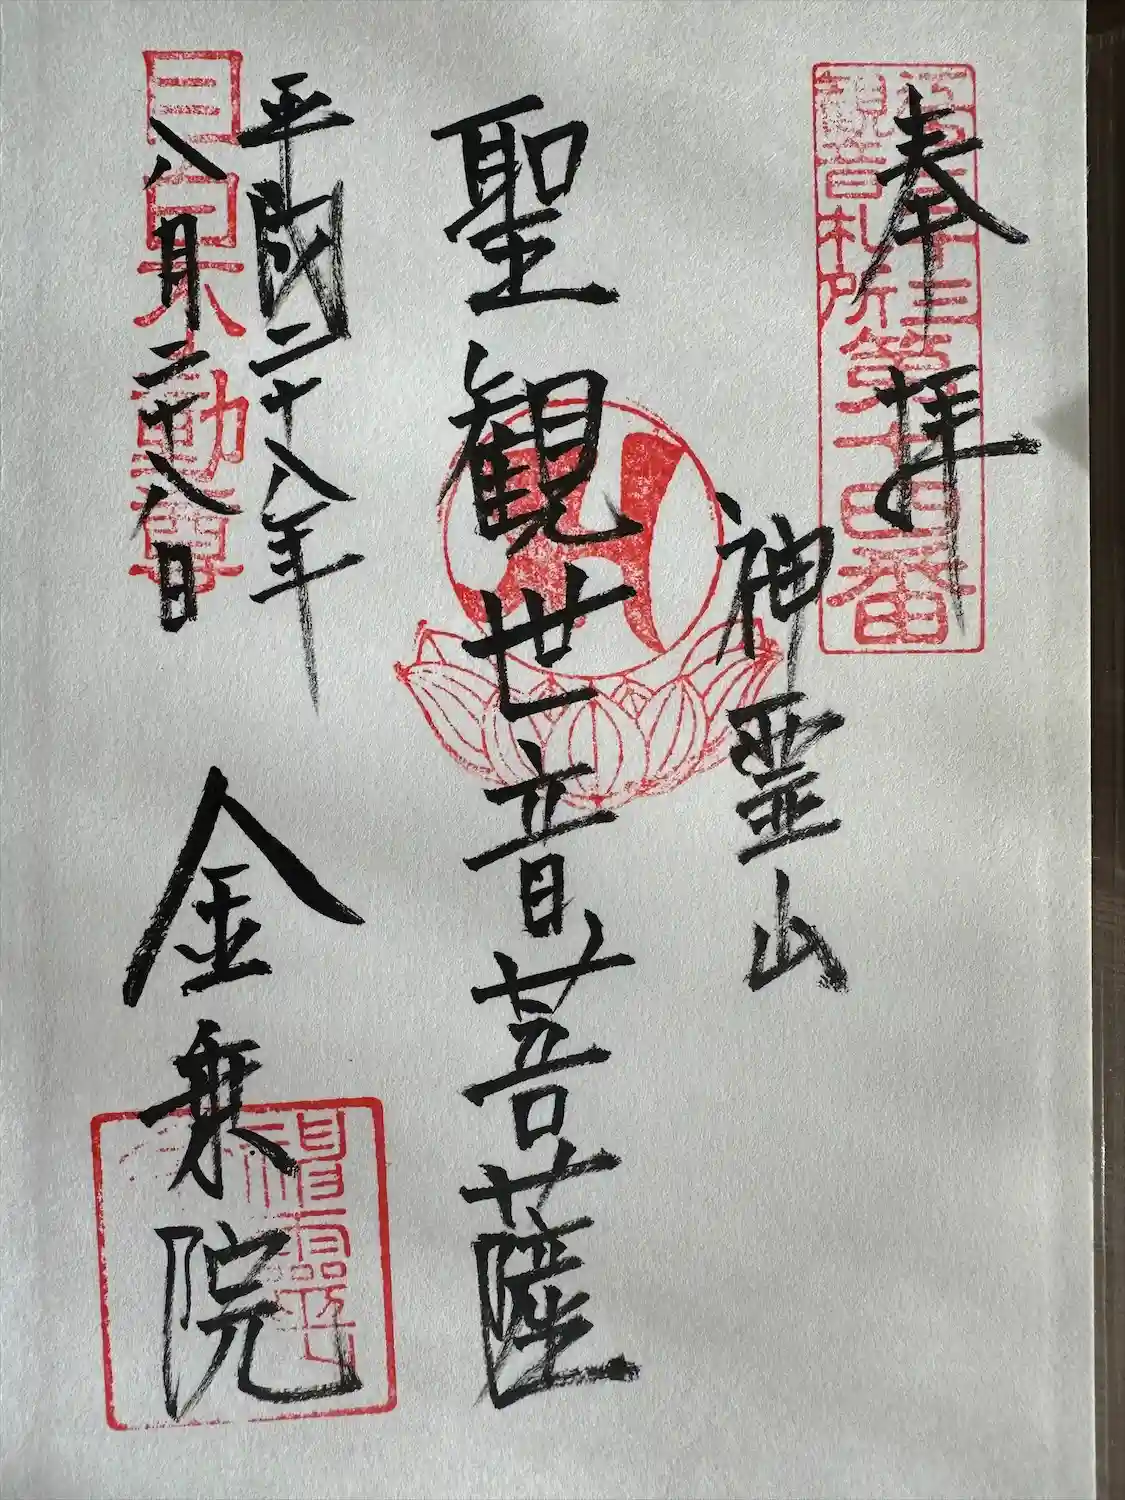 奉拝
観音札所第十四番
神霊山
聖観世音菩薩
平成二十八年
八月二十八日
目白不動尊
金乗院